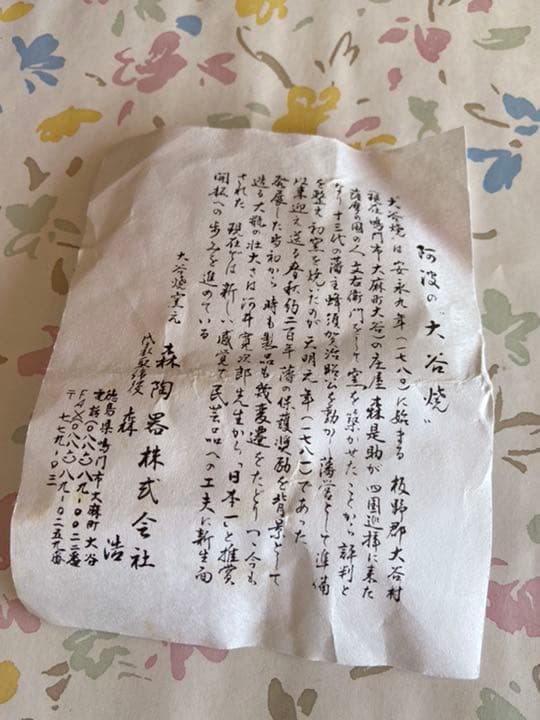 阿波の〝大谷焼〟
大谷焼は安永九年(一七八〇)に始まる 板野郡大谷村
(現在鳴門市大麻町大谷)の庄屋 森是助が四国巡拝に来た
薩摩の国の人 文右衛門をして窯を築かせたことから評判と
なり 十三代の藩主蜂須賀治昭公を動かし 藩営として準備
を整え初窯を焼いたのが天明元年(一七八一)であった
以来迎え送る春秋約二百年 藩の保護奨励を背景として
発展した当初から 時も製品も幾変遷をたどりつゝ今も
造る大瓶の壮大さは河井寛次郎先生から「日本一」と推賞
された 現在では新しい感覚で民芸品への工夫に新生面
開拓への歩みを進めている
大谷焼窯元
森陶器株式会社
代表取締役 森 浩
徳島県鳴門市大麻町大谷
電話(〇八八六)八九-〇〇二二番
FAX(〇八八六)八九-〇二五五番
〒七七九-〇三